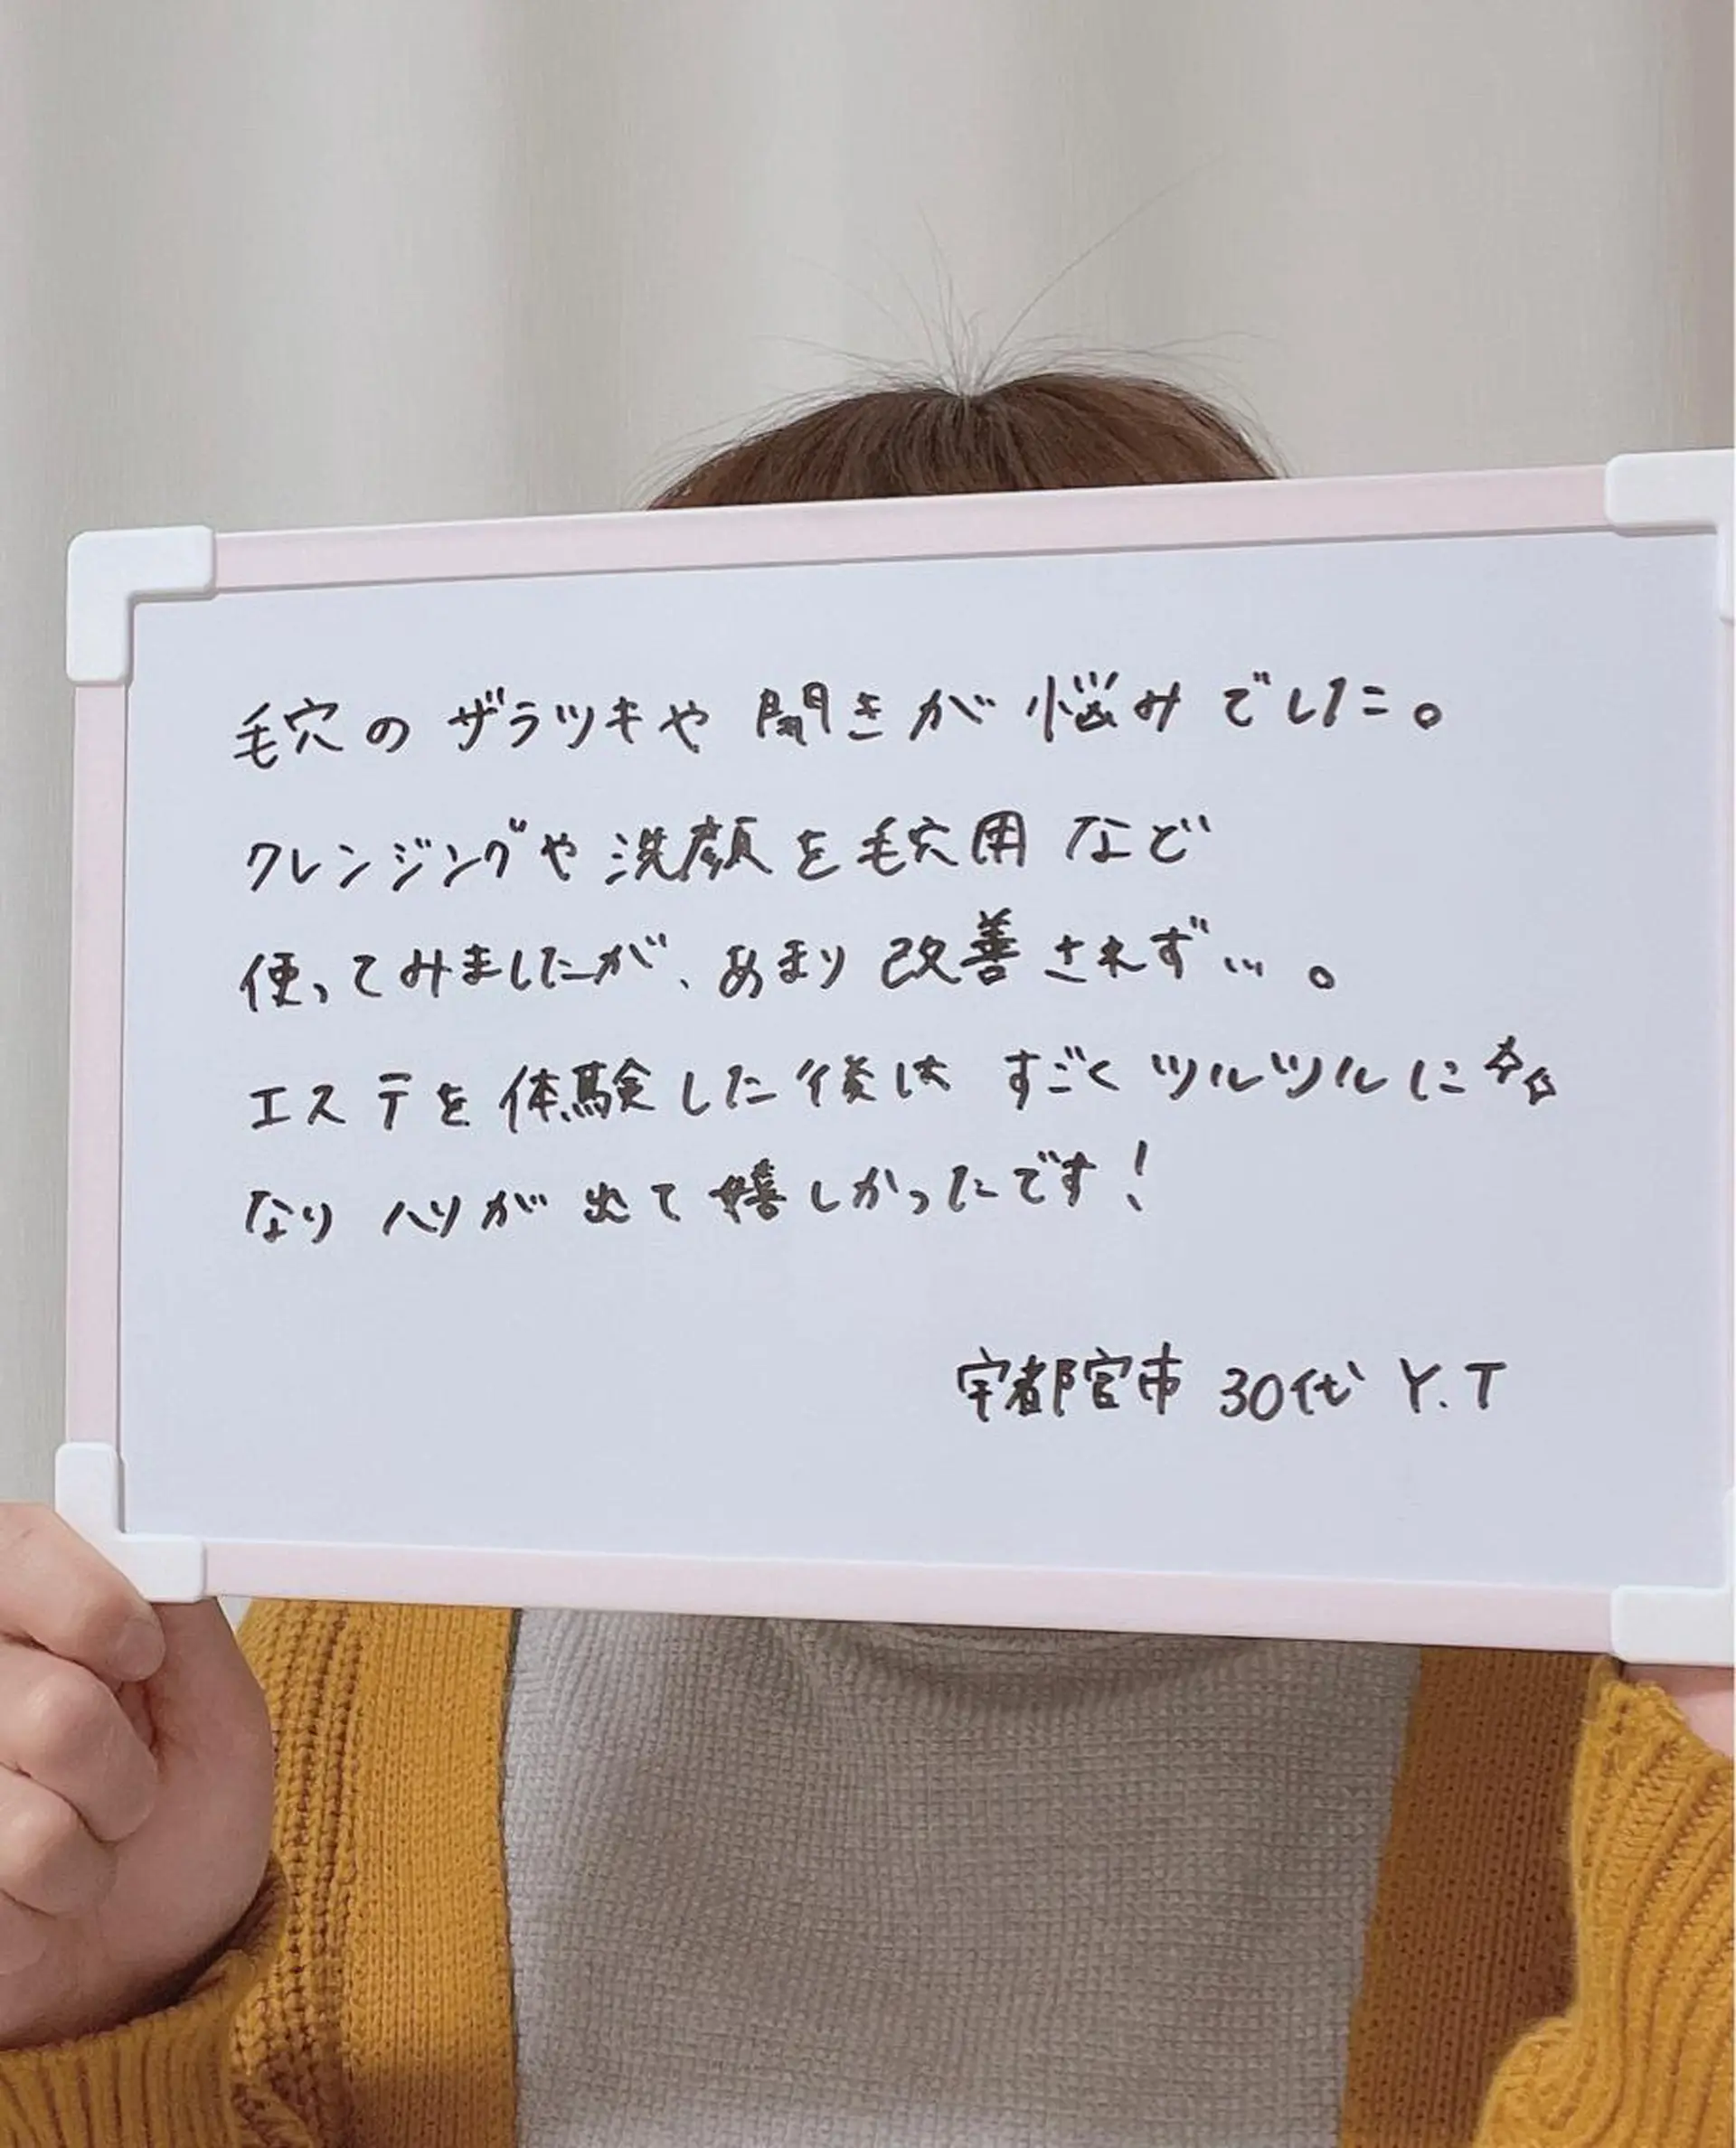 毛穴のザラツキや開きが悩みでした。
クレンジングや洗顔を毛穴用など
使ってみましたが、あまり改善されず…。
エステを体験した後はすごくツルツルに☆☆
なりハリが出て嬉しかったです!
宇都宮市 30代 Y.T